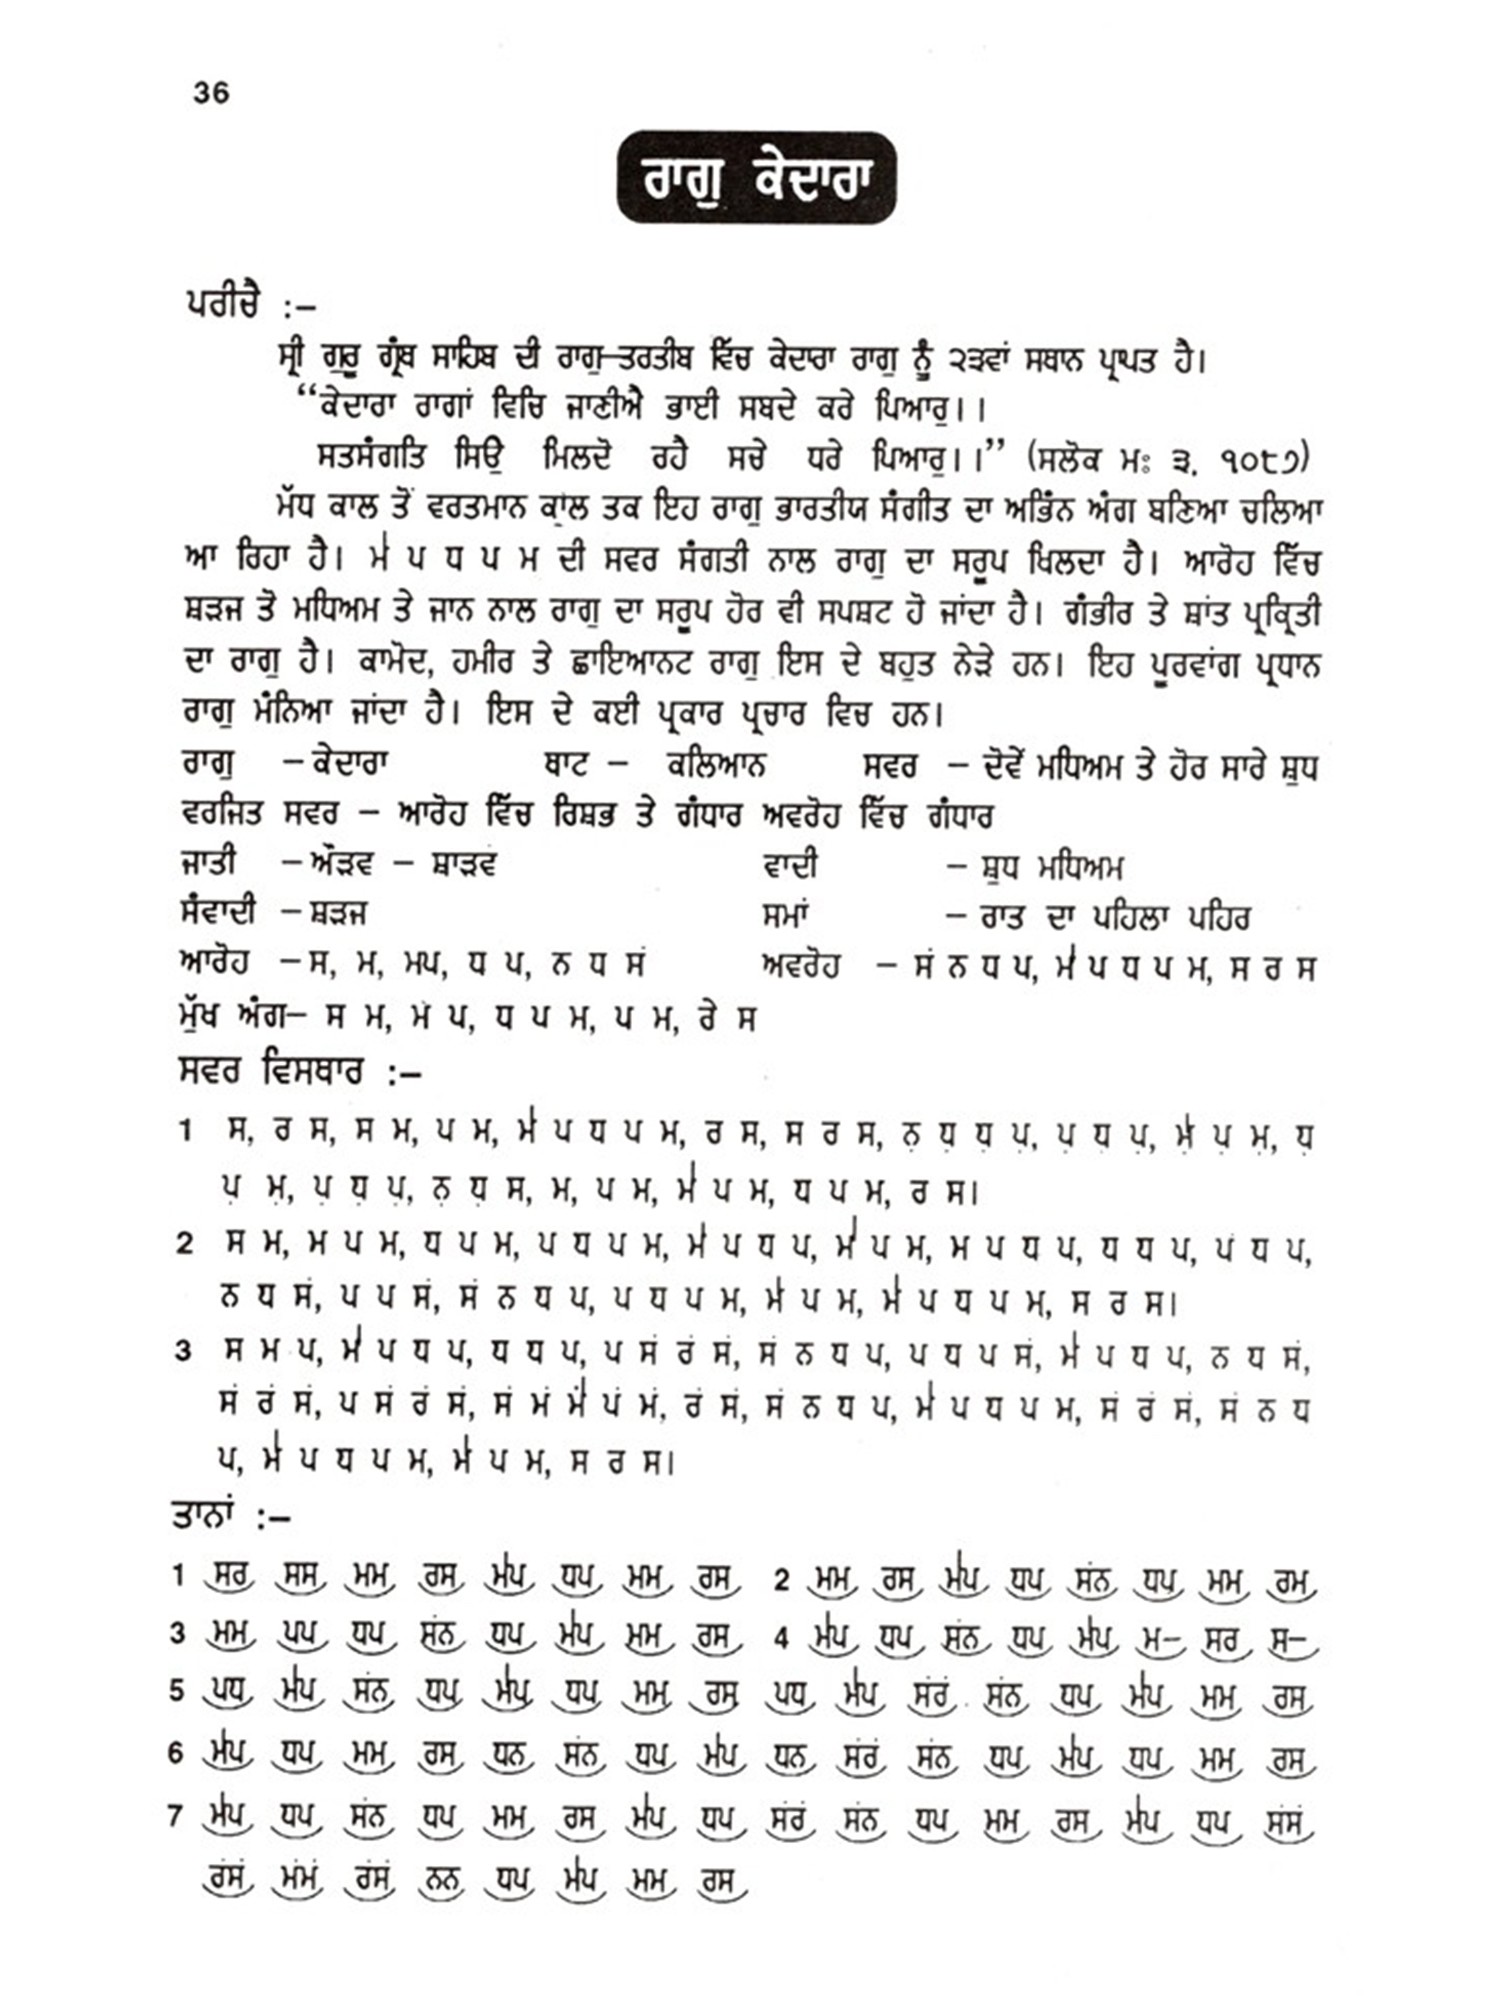 36
ਰਾਗੁ ਕੇਦਾਰਾ
ਪਰੀਚੈ :–
ਸ੍ਰੀ ਗੁਰੂ ਗ੍ਰੰਥ ਸਾਹਿਬ ਦੀ ਰਾਗੁ–ਤਰਤੀਬ ਵਿੱਚ ਕੇਦਾਰਾ ਰਾਗੁ ਨੂੰ ੨੩ਵਾਂ ਸਥਾਨ ਪ੍ਰਾਪਤ ਹੈ।
“ਕੇਦਾਰਾ ਰਾਗਾਂ ਵਿਚਿ ਜਾਣੀਐ ਭਾਈ ਸਬਦੇ ਕਰੇ ਪਿਆਰੁ।।
ਸਤਸੰਗਤਿ ਸਿਉ ਮਿਲਦੋ ਰਹੈ ਸਚੇ ਧਰੇ ਪਿਆਰੁ।।” (ਸਲੋਕ ਮਃ ੩. ੧੦੮੭)
ਮੱਧ ਕਾਲ ਤੋਂ ਵਰਤਮਾਨ ਕਾਲ ਤਕ ਇਹ ਰਾਗੁ ਭਾਰਤੀਯ ਸੰਗੀਤ ਦਾ ਅਭਿੰਨ ਅੰਗ ਬਣਿਆ ਚਲਿਆ
ਆ ਰਿਹਾ ਹੈ। ਮ॑ ਪ ਧ ਪ ਮ ਦੀ ਸਵਰ ਸੰਗਤੀ ਨਾਲ ਰਾਗੁ ਦਾ ਸਰੂਪ ਖਿਲਦਾ ਹੈ। ਆਰੋਹ ਵਿੱਚ
ਸ਼ੜਜ ਤੋ ਮਧਿਅਮ ਤੇ ਜਾਨ ਨਾਲ ਰਾਗੁ ਦਾ ਸਰੂਪ ਹੋਰ ਵੀ ਸਪਸ਼ਟ ਹੋ ਜਾਂਦਾ ਹੈ। ਗੰਭੀਰ ਤੇ ਸ਼ਾਂਤ ਪ੍ਰਕ੍ਰਿਤੀ
ਦਾ ਰਾਗੁ ਹੈ। ਕਾਮੋਦ, ਹਮੀਰ ਤੇ ਛਾਇਆਨਟ ਰਾਗੁ ਇਸ ਦੇ ਬਹੁਤ ਨੇੜੇ ਹਨ। ਇਹ ਪੂਰਵਾਂਗ ਪ੍ਰਧਾਨ
ਰਾਗੁ ਮੰਨਿਆ ਜਾਂਦਾ ਹੈ। ਇਸ ਦੇ ਕਈ ਪ੍ਰਕਾਰ ਪ੍ਰਚਾਰ ਵਿਚ ਹਨ।
ਰਾਗੁ – ਕੇਦਾਰਾ ਥਾਟ – ਕਲਿਆਨ ਸਵਰ – ਦੋਵੇਂ ਮਧਿਅਮ ਤੇ ਹੋਰ ਸਾਰੇ ਸ਼ੁਧ
ਵਰਜਿਤ ਸਵਰ – ਆਰੋਹ ਵਿੱਚ ਰਿਸ਼ਭ ਤੇ ਗੰਧਾਰ ਅਵਰੋਹ ਵਿੱਚ ਗੰਧਾਰ
ਜਾਤੀ – ਔੜਵ – ਸ਼ਾੜਵ ਵਾਦੀ – ਸ਼ੁਧ ਮਧਿਅਮ
ਸੰਵਾਦੀ – ਸ਼ੜਜ ਸਮਾਂ – ਰਾਤ ਦਾ ਪਹਿਲਾ ਪਹਿਰ
ਆਰੋਹ – ਸ, ਮ, ਮਪ, ਧ ਪ, ਨ ਧ ਸਂ ਅਵਰੋਹ – ਸਂ ਨ ਧ ਪ, ਮ॑ ਪ ਧ ਪ ਮ, ਸ ਰ ਸ
ਮੁੱਖ ਅੰਗ– ਸ ਮ, ਮ॑ ਪ, ਧ ਪ ਮ, ਪ ਮ, ਰੇ ਸ
ਸਵਰ ਵਿਸਥਾਰ :–
1 ਸ, ਰ ਸ, ਸ ਮ, ਪ ਮ, ਮ॑ ਪ ਧ ਪ ਮ, ਰ ਸ, ਸ ਰ ਸ, ਨ਼ ਧ਼ ਧ਼ ਪ਼, ਪ਼ ਧ਼ ਪ਼, ਮ਼॑ ਪ਼ ਮ਼, ਧ਼
ਪ਼ ਮ਼, ਪ਼ ਧ਼ ਪ਼, ਨ਼ ਧ਼ ਸ, ਮ, ਪ ਮ, ਮ॑ ਪ ਮ, ਧ ਪ ਮ, ਰ ਸ।
2 ਸ ਮ, ਮ ਪ ਮ, ਧ ਪ ਮ, ਪ ਧ ਪ ਮ, ਮ॑ ਪ ਧ ਪ, ਮ॑ ਪ ਮ, ਮ ਪ ਧ ਪ, ਧ ਧ ਪ, ਪ ਧ ਪ,
ਨ ਧ ਸਂ, ਪ ਪ ਸਂ, ਸਂ ਨ ਧ ਪ, ਪ ਧ ਪ ਮ, ਮ॑ ਪ ਮ, ਮ॑ ਪ ਧ ਪ ਮ, ਸ ਰ ਸ।
3 ਸ ਮ ਪ, ਮ॑ ਪ ਧ ਪ, ਧ ਧ ਪ, ਪ ਸਂ ਰਂ ਸਂ, ਸਂ ਨ ਧ ਪ, ਪ ਧ ਪ ਸਂ, ਮ॑ ਪ ਧ ਪ, ਨ ਧ ਸਂ,
ਸਂ ਰਂ ਸਂ, ਪ ਸਂ ਰਂ ਸਂ, ਸਂ ਮਂ ਮ॑ਂ ਪਂ ਮਂ, ਰਂ ਸਂ, ਸਂ ਨ ਧ ਪ, ਮ॑ ਪ ਧ ਪ ਮ, ਸਂ ਰਂ ਸਂ, ਸਂ ਨ ਧ
ਪ, ਮ॑ ਪ ਧ ਪ ਮ, ਮ॑ ਪ ਮ, ਸ ਰ ਸ।
ਤਾਨਾਂ :–
1 ਸਰ ਸਸ ਮਮ ਰਸ ਮ॑ਪ ਧਪ ਮਮ ਰਸ 2 ਮਮ ਰਸ ਮ॑ਪ ਧਪ ਸਂਨ ਧਪ ਮਮ ਰਮ
3 ਮਮ ਪਪ ਧਪ ਸਂਨ ਧਪ ਮ॑ਪ ਮਮ ਰਸ 4 ਮ॑ਪ ਧਪ ਸਂਨ ਧਪ ਮ॑ਪ ਮ– ਸਰ ਸ–
5 ਪਧ ਮ॑ਪ ਸਂਨ ਧਪ ਮ॑ਪ ਧਪ ਮਮ ਰਸ ਪਧ ਮ॑ਪ ਸਂਰਂ ਸਂਨ ਧਪ ਮ॑ਪ ਮਮ ਰਸ
6 ਮ॑ਪ ਧਪ ਮਮ ਰਸ ਧਨ ਸਂਨ ਧਪ ਮ॑ਪ ਧਨ ਸਂਰਂ ਸਂਨ ਧਪ ਮ॑ਪ ਧਪ ਮਮ ਰਸ
7 ਮ॑ਪ ਧਪ ਸਂਨ ਧਪ ਮਮ ਰਸ ਮ॑ਪ ਧਪ ਸਂਰਂ ਸਂਨ ਧਪ ਮਮ ਰਸ ਮ॑ਪ ਧਪ ਸਂਸਂ
ਰਂਸਂ ਮਂਮਂ ਰਂਸਂ ਨਨ ਧਪ ਮ॑ਪ ਮਮ ਰਸ